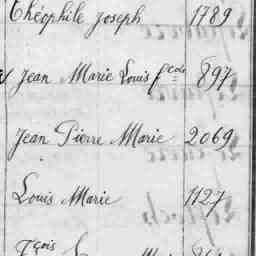 Théophile Joseph 1789
Jean Marie Louis fçois 897
Jean Pierre Marie 2069
Louis Marie 1127
Fçois